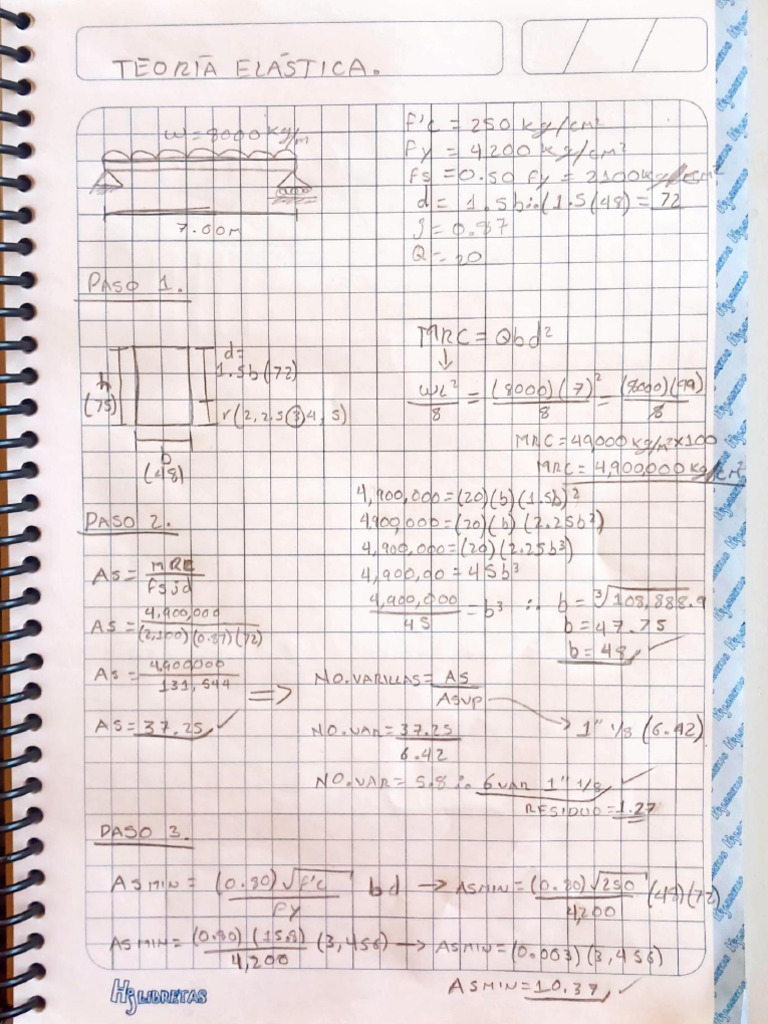 TEORÍA ELÁSTICA.
W = 8000 kg/m
7.00m
F'c = 250 kg/cm²
Fy = 4200 kg/cm²
fs = 0.50 Fy = 2100 kg/cm²
d = 1.5b ∴ (1.5(48) = 72
J = 0.87
Q = 20
PASO 1.
h
(75)
d=
1.5b (72)
r (2, 2.5 3 4, 5)
b
(48)
MRC = Qbd²
↓
WL²/8 = (8000)(7)²/8 = (8000)(49)/8
MRC = 49,000 kg/m² x 100
MRC = 4,900,000 kg/cm²
4,900,000 = (20)(b)(1.5b)²
4900,000 = (20)(b)(2.25b²)
4,900,000 = (20)(2.25b³)
4,900,00 = 45b³
4,900,000/45 = b³ ∴ b = ³√108,888.9
b = 47.75
b = 48 ✓
PASO 2.
As = MRC/fsjd
As = 4,900,000/(2,100)(0.87)(72)
As = 4,900,000/131,544 ⇒
As = 37.25 ✓
NO. VARILLAS = AS/ASUP
→ 1" 1/8 (6.42)
NO. VAR = 37.25/6.42
NO. VAR = 5.8 ∴ 6 VAR 1" 1/8 ✓
RESIDUO = 1.27
PASO 3.
ASMIN = (0.80)√F'c/FY bd → ASMIN = (0.80)√250/4200 (48)(72)
ASMIN = (0.80)(15.8)/4,200 (3,456) → ASMIN = (0.003)(3,456)
ASMIN = 10.37 ✓
HJ LIBRETAS